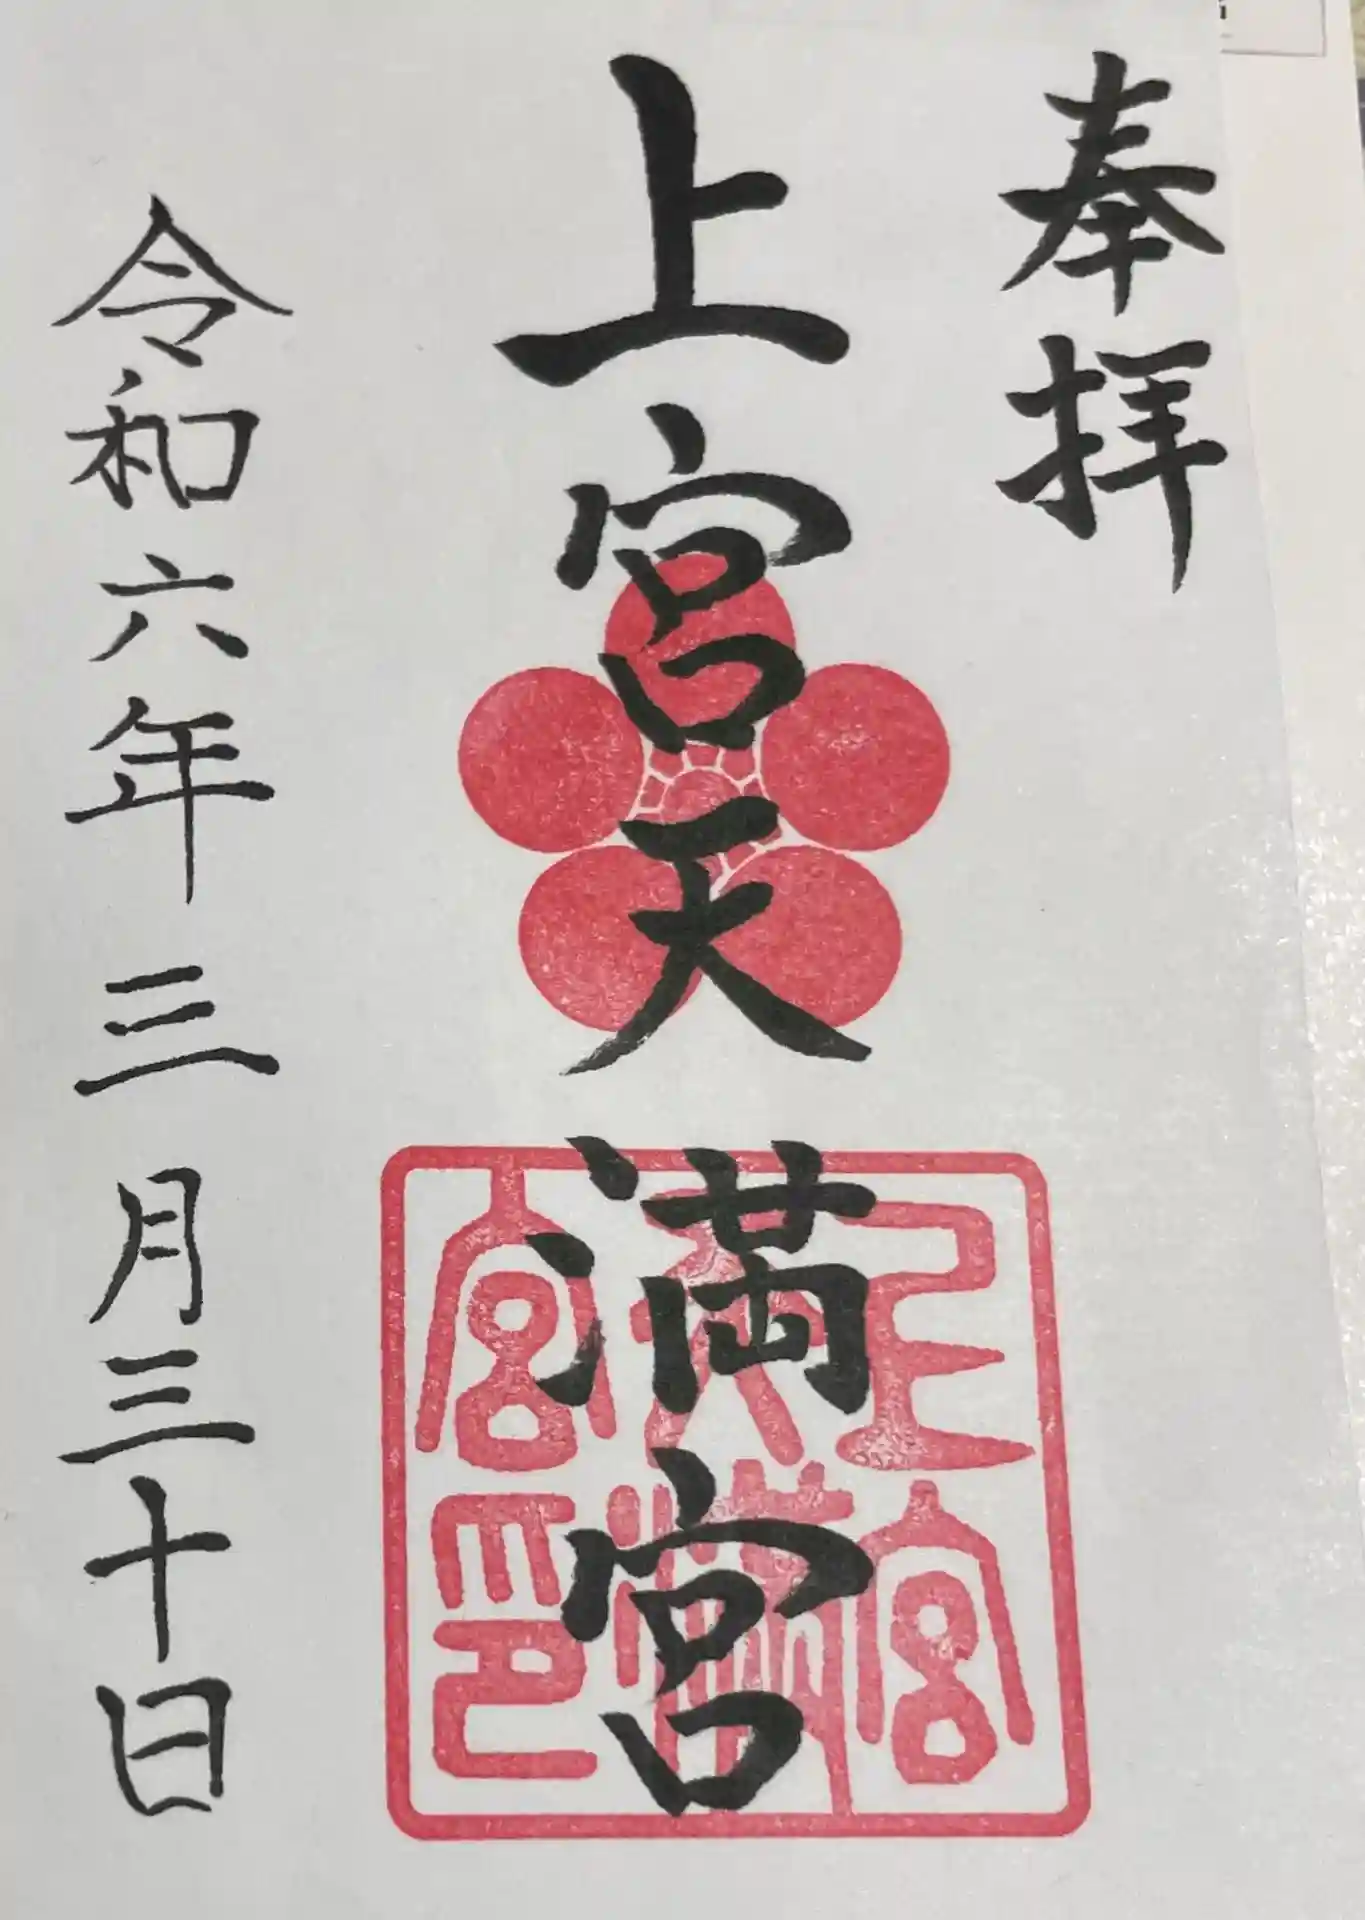 奉拝
上宮天満宮
上宮天満宮印
令和六年三月三十日